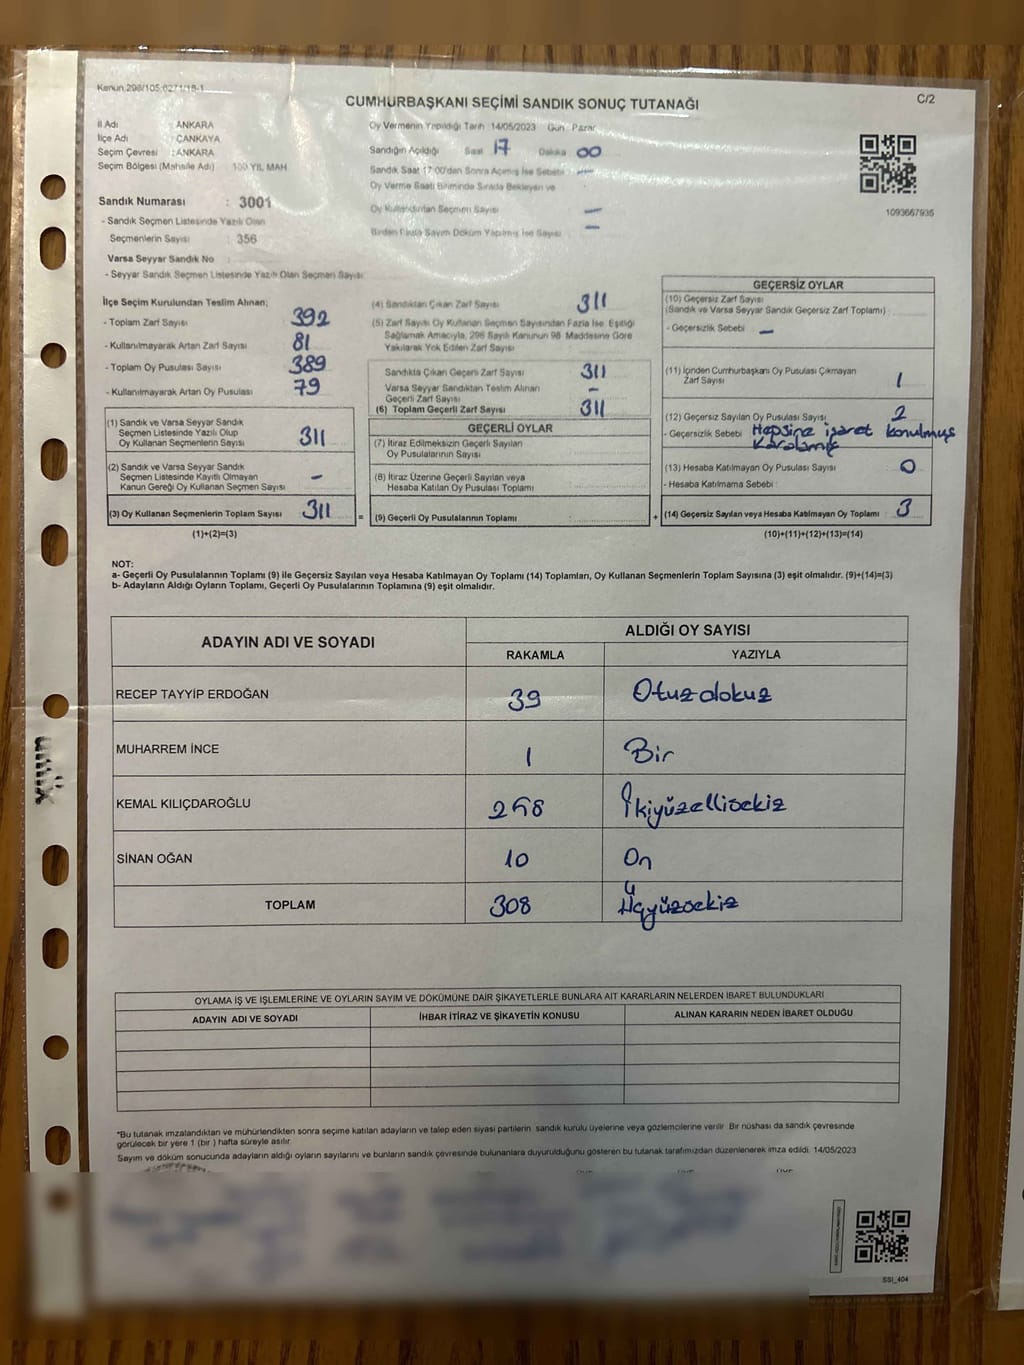 Kanun 298/105,6271/18-1
C/2
CUMHURBAŞKANI SEÇİMİ SANDIK SONUÇ TUTANAĞI
İl Adı : ANKARA
İlçe Adı : ÇANKAYA
Seçim Çevresi : ANKARA
Seçim Bölgesi (Mahalle Adı) : 100 YIL MAH
Sandık Numarası : 3001
- Sandık Seçmen Listesinde Yazılı Olan
Seçmenlerin Sayısı : 356
Varsa Seyyar Sandık No
- Seyyar Sandık Seçmen Listesinde Yazılı Olan Seçmen Sayısı:
Oy Vermenin Yapıldığı Tarih 14/05/2023 Gün Pazar
Sandığın Açıldığı Saat 17 Dakika 00
Sandık Saat 17:00'den Sonra Açılmış İse Sebebi —
Oy Verme Saati Bitiminde Sırada Bekleyen ve
Oy Kullandırılan Seçmen Sayısı —
Birden Fazla Sayım Döküm Yapılmış İse Sayısı —
1093667935
İlçe Seçim Kurulundan Teslim Alınan;
- Toplam Zarf Sayısı 392
- Kullanılmayarak Artan Zarf Sayısı 81
- Toplam Oy Pusulası Sayısı 389
- Kullanılmayarak Artan Oy Pusulası 79
(1) Sandık ve Varsa Seyyar Sandık
Seçmen Listesinde Yazılı Olup
Oy Kullanan Seçmenlerin Sayısı 311
(2) Sandık ve Varsa Seyyar Sandık
Seçmen Listesinde Kayıtlı Olmayan
Kanun Gereği Oy Kullanan Seçmen Sayısı -
(3) Oy Kullanan Seçmenlerin Toplam Sayısı 311
(1)+(2)=(3)
(4) Sandıktan Çıkan Zarf Sayısı 311
(5) Zarf Sayısı Oy Kullanan Seçmen Sayısından Fazla İse, Eşitliği
Sağlamak Amacıyla, 298 Sayılı Kanunun 98. Maddesine Göre
Yakılarak Yok Edilen Zarf Sayısı
Sandıkta Çıkan Geçerli Zarf Sayısı 311
Varsa Seyyar Sandıktan Teslim Alınan
Geçerli Zarf Sayısı -
(6) Toplam Geçerli Zarf Sayısı 311
GEÇERLİ OYLAR
(7) İtiraz Edilmeksizin Geçerli Sayılan
Oy Pusulalarının Sayısı
(8) İtiraz Üzerine Geçerli Sayılan veya
Hesaba Katılan Oy Pusulası Toplamı
= (9) Geçerli Oy Pusulalarının Toplamı
GEÇERSİZ OYLAR
(10) Geçersiz Zarf Sayısı
(Sandık ve Varsa Seyyar Sandık Geçersiz Zarf Toplamı)
- Geçersizlik Sebebi —
(11) İçinden Cumhurbaşkanı Oy Pusulası Çıkmayan
Zarf Sayısı 1
(12) Geçersiz Sayılan Oy Pusulası Sayısı 2
- Geçersizlik Sebebi Hepsine işaret konulmuş
Karalamış
(13) Hesaba Katılmayan Oy Pusulası Sayısı 0
- Hesaba Katılmama Sebebi
+ (14) Geçersiz Sayılan veya Hesaba Katılmayan Oy Toplamı 3
(10)+(11)+(12)+(13)=(14)
NOT:
a- Geçerli Oy Pusulalarının Toplamı (9) ile Geçersiz Sayılan veya Hesaba Katılmayan Oy Toplamı (14) Toplamları, Oy Kullanan Seçmenlerin Toplam Sayısına (3) eşit olmalıdır. (9)+(14)=(3)
b- Adayların Aldığı Oyların Toplamı, Geçerli Oy Pusulalarının Toplamına (9) eşit olmalıdır.
ADAYIN ADI VE SOYADI
ALDIĞI OY SAYISI
RAKAMLA YAZIYLA
RECEP TAYYİP ERDOĞAN 39 Otuzdokuz
MUHARREM İNCE 1 Bir
KEMAL KILIÇDAROĞLU 258 İkiyüzellisekiz
SİNAN OĞAN 10 On
TOPLAM 308 Üçyüzsekiz
OYLAMA İŞ VE İŞLEMLERİNE VE OYLARIN SAYIM VE DÖKÜMÜNE DAİR ŞİKAYETLERLE BUNLARA AİT KARARLARIN NELERDEN İBARET BULUNDUKLARI
ADAYIN ADI VE SOYADI İHBAR İTİRAZ VE ŞİKAYETİN KONUSU ALINAN KARARIN NEDEN İBARET OLDUĞU
*Bu tutanak imzalandıktan ve mühürlendikten sonra seçime katılan adayların ve talep eden siyasi partilerin sandık kurulu üyelerine veya gözlemcilerine verilir. Bir nüshası da sandık çevresinde
görülecek bir yere 1 (bir) hafta süreyle asılır.
Sayım ve döküm sonucunda adayların aldığı oyların sayılarını ve bunların sandık çevresinde bulunanlara duyurulduğunu gösteren bu tutanak tarafımızdan düzenlenerek imza edildi. 14/05/2023
SSI_404